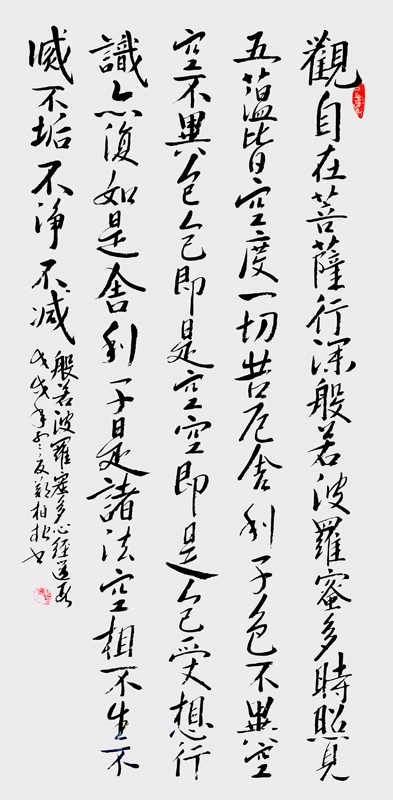 觀自在菩薩行深般若波羅蜜多時照見
五蘊皆空度一切苦厄舍利子色不異空
空不異色色即是空空即是色受想行
識亦復如是舍利子是諸法空相不生不
滅不垢不淨不減
般若波羅蜜多心經選段
戊戌年